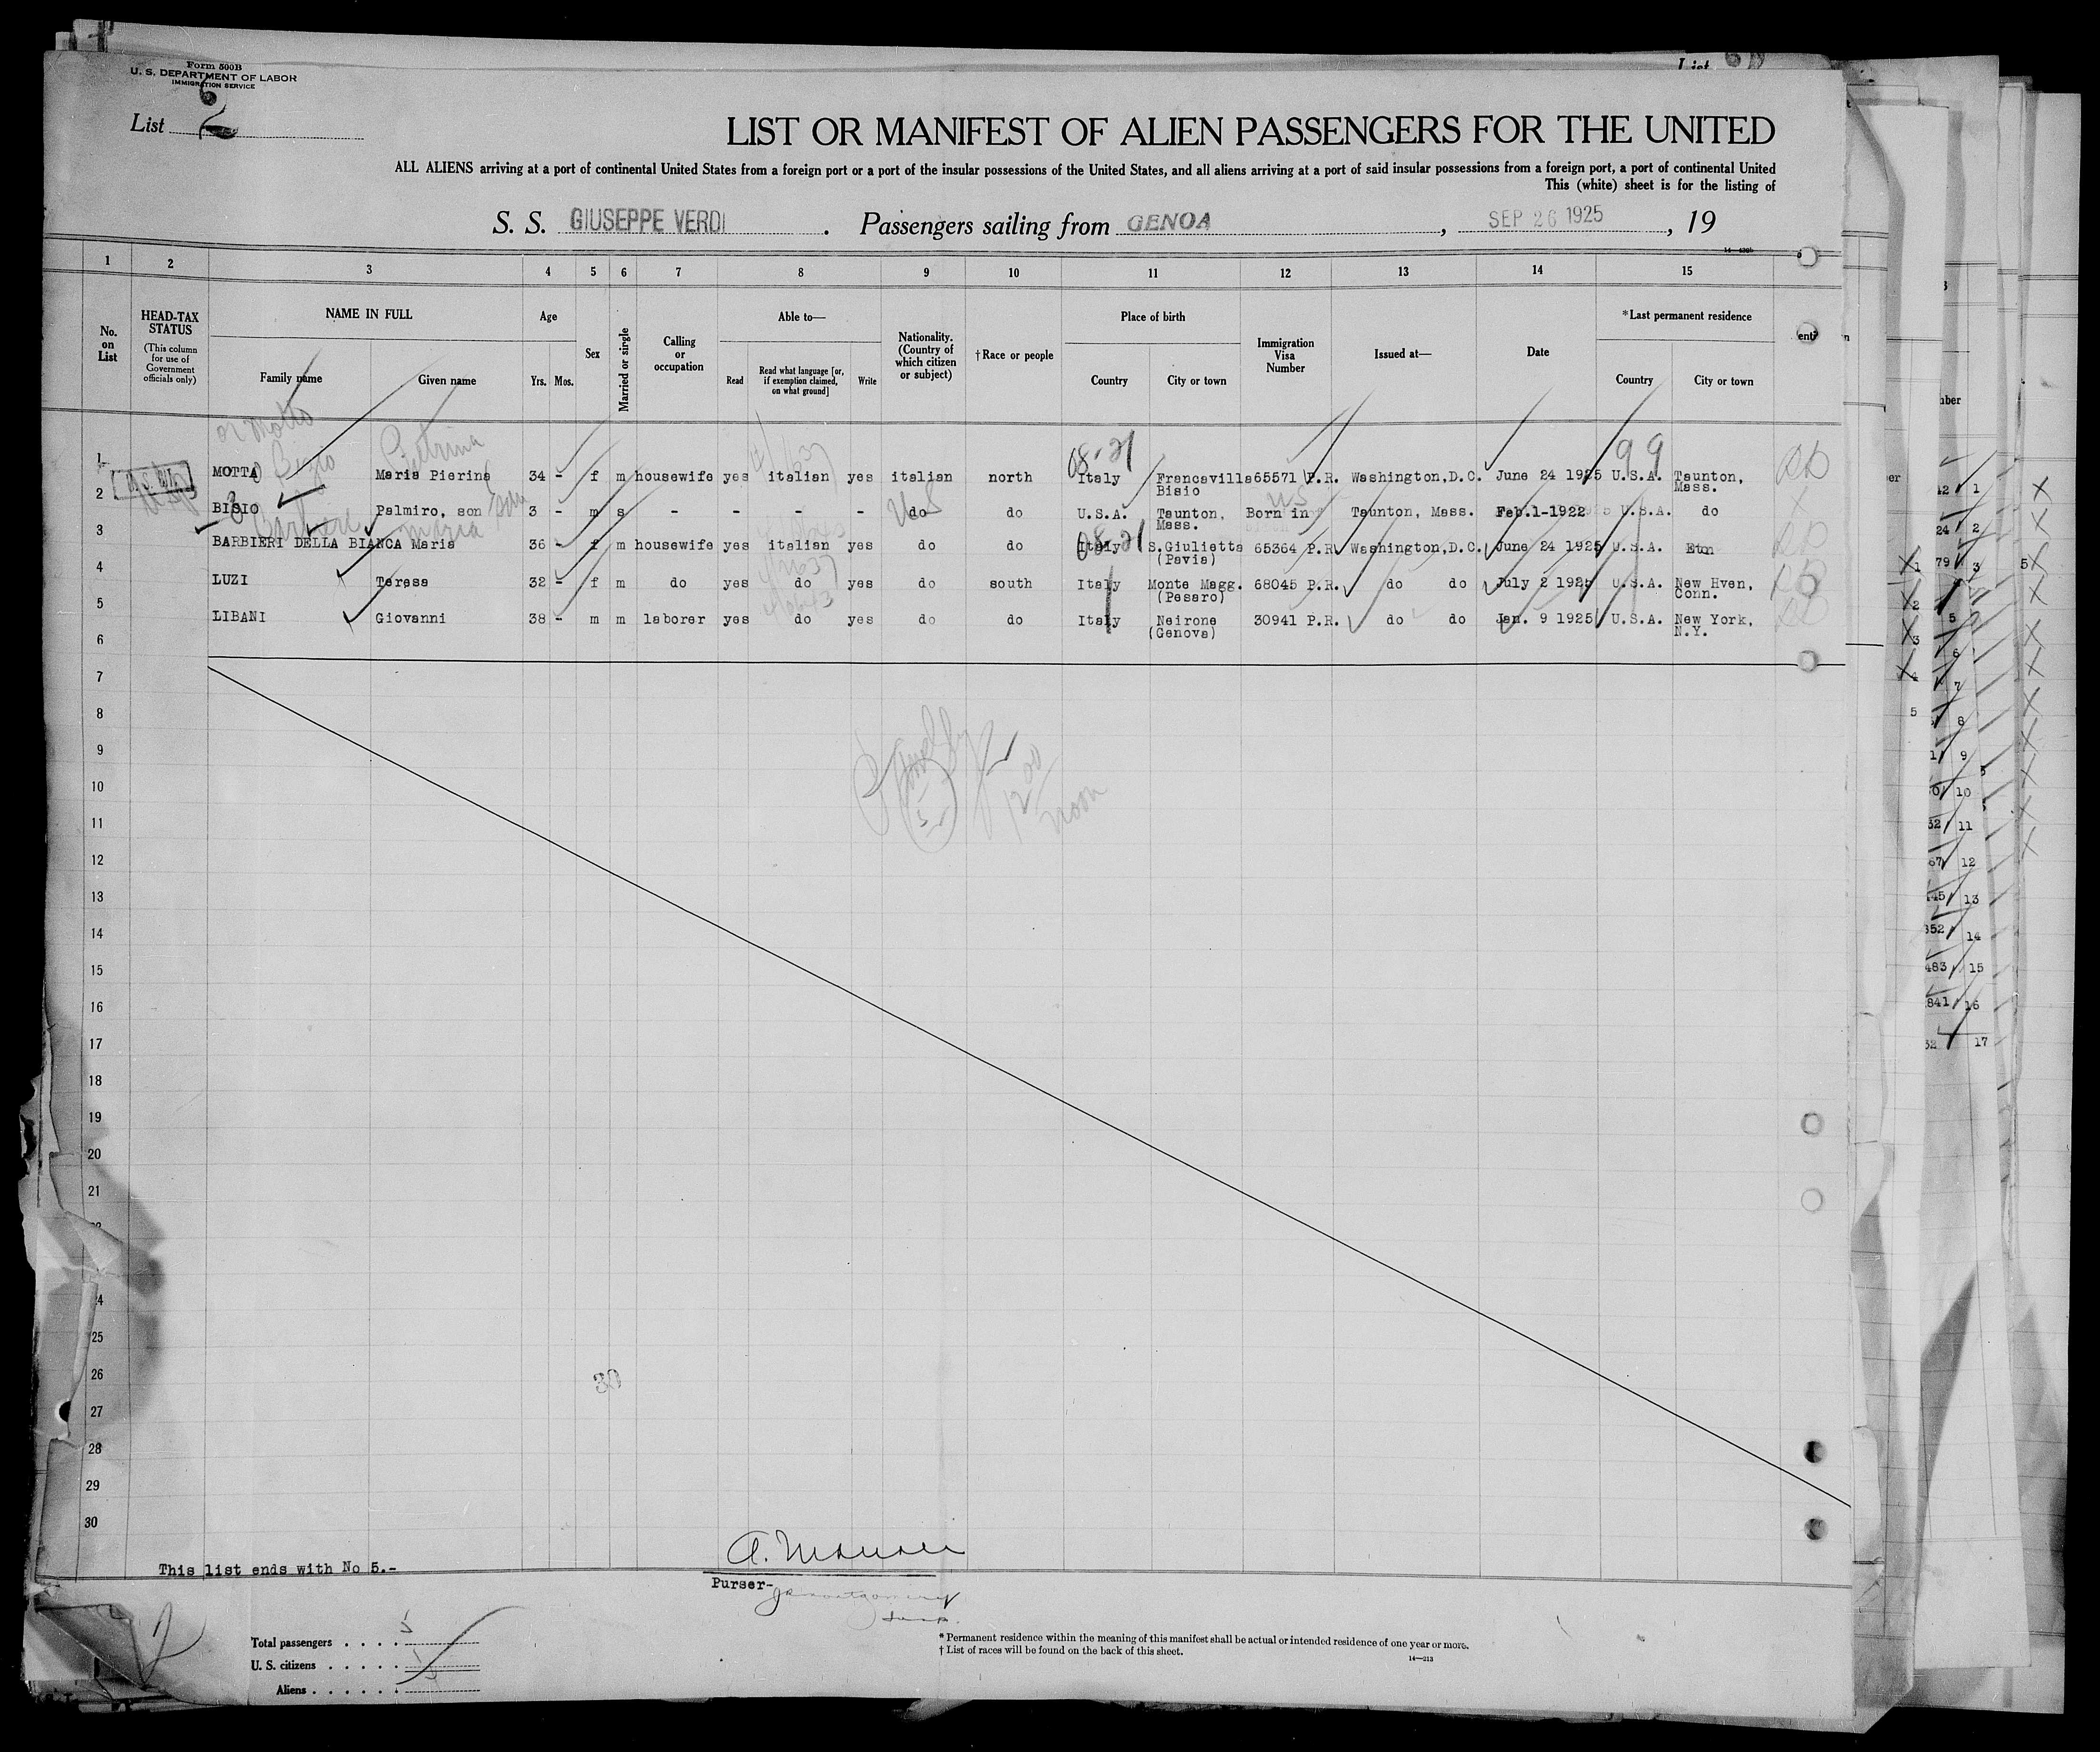 Form 500B
U. S. DEPARTMENT OF LABOR
IMMIGRATION SERVICE
List 2
List
LIST OR MANIFEST OF ALIEN PASSENGERS FOR THE UNITED
ALL ALIENS arriving at a port of continental United States from a foreign port or a port of the insular possessions of the United States, and all aliens arriving at a port of said insular possessions from a foreign port, a port of continental United
This (white) sheet is for the listing of
S. S. GIUSEPPE VERDI . Passengers sailing from GENOA , SEP 26 1925 , 19
1 2 3 4 5 6 7 8 9 10 11 12 13 14 15
No. on List
HEAD-TAX STATUS
(This column for use of Government officials only)
NAME IN FULL
Family name
Given name
Age
Yrs. Mos.
Sex
Married or single
Calling or occupation
Able to—
Read
Read what language [or, if exemption claimed, on what ground]
Write
Nationality. (Country of which citizen or subject)
† Race or people
Place of birth
Country
City or town
Immigration Visa Number
Issued at—
Date
*Last permanent residence
Country
City or town
or Motto
Bizio Pietrina
08-21
99
1 MOTTA Maria Pierina 34 - f m housewife yes italian yes italian north Italy Francavilla 65571 P.R. Washington,D.C. June 24 1925 U.S.A. Taunton,
Bisio Mass.
U S
2 BISIO Palmiro, son 3 - m s - - - do do U.S.A. Taunton, Born in Taunton, Mass. Feb.1-1922 U.S.A. do
Mass.
Barbieri Maria
08-21
3 BARBIERI DELLA BIANCA Maria 36 - f m housewife yes italian yes do do Italy S.Giulietta 65364 P.R. Washington,D.C. June 24 1925 U.S.A.
(Pavia)
4 LUZI Teresa 32 - f m do yes do yes do south Italy Monte Magg. 68045 P.R. do do July 2 1925 U.S.A. New Hven,
(Pesaro) Conn.
5 LIBANI Giovanni 38 - m m laborer yes do yes do do Italy Neirone 30941 P.R. do do Jan. 9 1925 U.S.A. New York,
(Genova) N.Y.
6
7
8
9
10
11
12
13
14
15
16
17
18
19
20
21
25
26
27
28
29
30
12 00
noon
30
This list ends with No 5.-
Purser-
Total passengers . . . . 5
U. S. citizens . . . . . 1
Aliens . . . . . .
* Permanent residence within the meaning of this manifest shall be actual or intended residence of one year or more.
† List of races will be found on the back of this sheet.
14—213